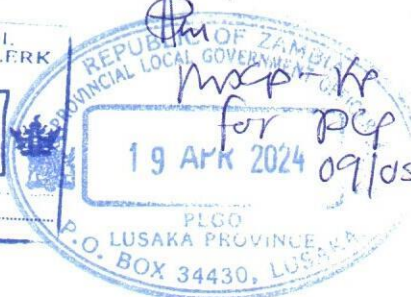 LERK
REPUBLIC OF ZAMBIA
PROVINCIAL LOCAL GOVERNMENT OFFICE
for
19 APR 2024
09/05
PLGO
LUSAKA PROVINCE
P.O. BOX 34430, LUSAKA